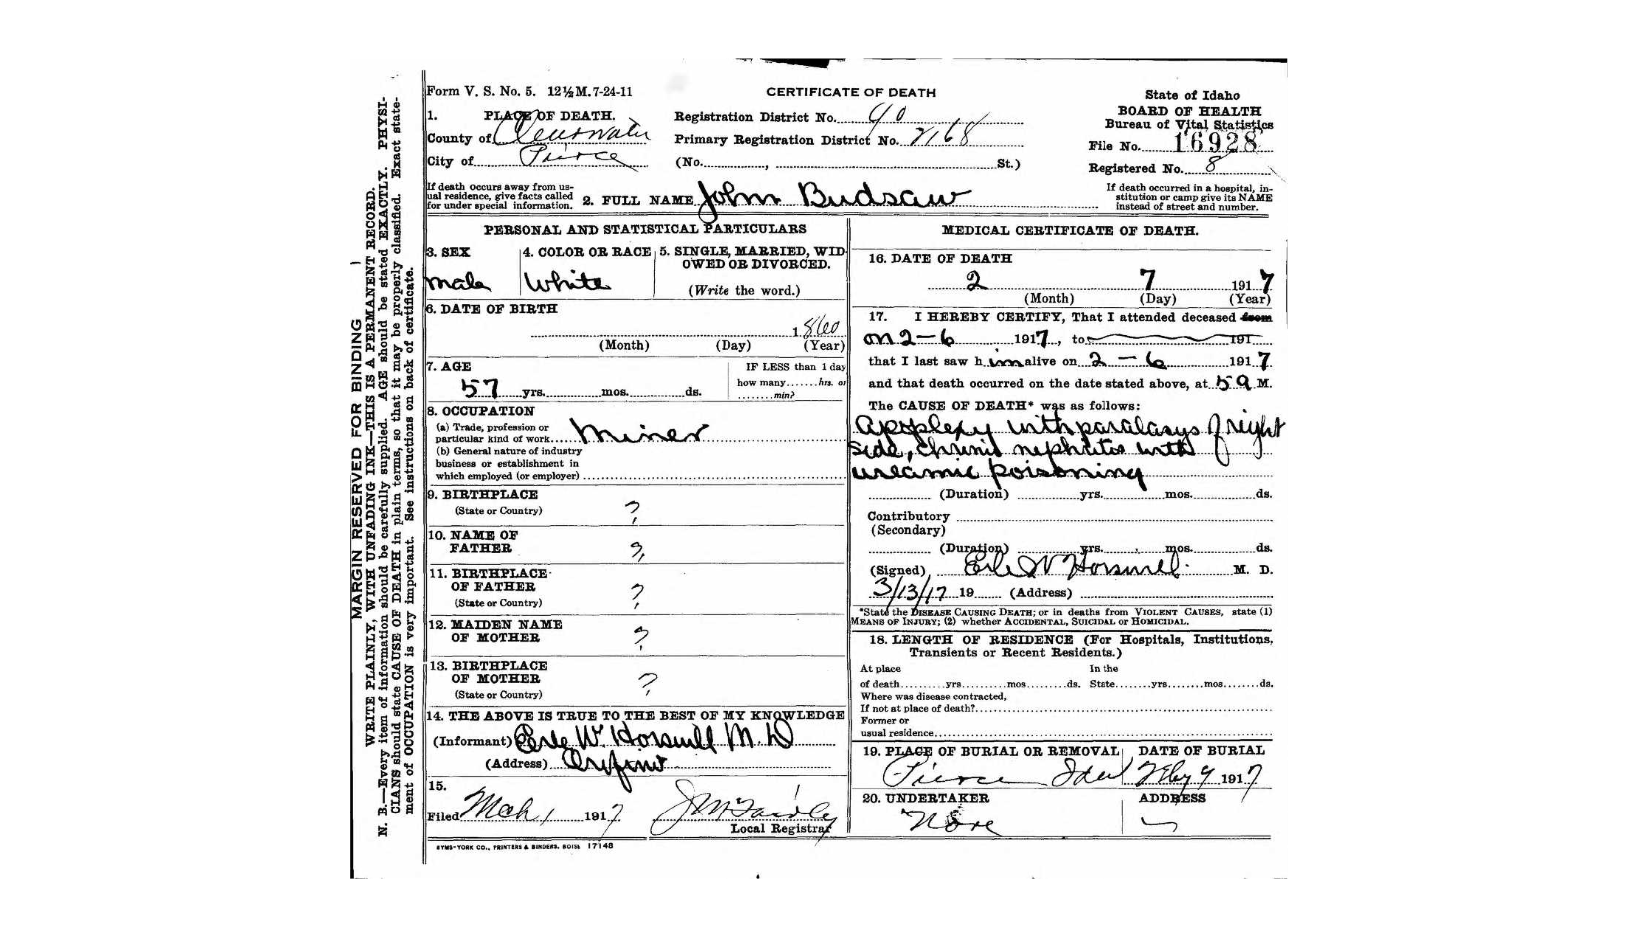 Form V. S. No. 5. 12½M. 7-24-11
CERTIFICATE OF DEATH
State of Idaho
BOARD OF HEALTH
Bureau of Vital Statistics
File No. 16928
Registered No. 8
1. PLACE OF DEATH.
County of Clearwater
City of Pierce
Registration District No. 90
Primary Registration District No. 2168
(No. , St.)
If death occurs away from us-
ual residence, give facts called
for under special information.
2. FULL NAME John Budsaw
If death occurred in a hospital, in-
stitution or camp give its NAME
instead of street and number.
PERSONAL AND STATISTICAL PARTICULARS
3. SEX
male
4. COLOR OR RACE
White
5. SINGLE, MARRIED, WID-
OWED OR DIVORCED.
(Write the word.)
6. DATE OF BIRTH
1860
(Month) (Day) (Year)
7. AGE
57 yrs. mos. ds.
IF LESS than 1 day
how many hrs. or
min?
8. OCCUPATION
(a) Trade, profession or
particular kind of work Miner
(b) General nature of industry
business or establishment in
which employed (or employer)
9. BIRTHPLACE
(State or Country) ?
10. NAME OF
FATHER ?
11. BIRTHPLACE
OF FATHER
(State or Country) ?
12. MAIDEN NAME
OF MOTHER ?
13. BIRTHPLACE
OF MOTHER
(State or Country) ?
14. THE ABOVE IS TRUE TO THE BEST OF MY KNOWLEDGE
(Informant) Earle W Horswill M.D
(Address) Orofino
15.
Filed Mch 1 1917
Local Registrar
SYMS-YORK CO., PRINTERS & BINDERS, BOISE 17148
MEDICAL CERTIFICATE OF DEATH.
16. DATE OF DEATH
2 7 1917
(Month) (Day) (Year)
17. I HEREBY CERTIFY, That I attended deceased from
on 2-6 1917, to 191
that I last saw him alive on 2-6 1917
and that death occurred on the date stated above, at 5 a M.
The CAUSE OF DEATH* was as follows:
Apoplexy with paralasys of right
side, chronic nephritis with
ureamic poisoning
(Duration) yrs. mos. ds.
Contributory
(Secondary)
(Duration) yrs. mos. ds.
(Signed) Earle W Horswill. M. D.
3/13/17 19 (Address)
*State the DISEASE CAUSING DEATH; or in deaths from VIOLENT CAUSES, state (1)
MEANS OF INJURY; (2) whether ACCIDENTAL, SUICIDAL or HOMICIDAL.
18. LENGTH OF RESIDENCE (For Hospitals, Institutions,
Transients or Recent Residents.)
At place In the
of death yrs. mos. ds. State yrs. mos. ds.
Where was disease contracted,
If not at place of death?
Former or
usual residence
19. PLACE OF BURIAL OR REMOVAL
Pierce Ida
DATE OF BURIAL
Feby 9 1917
20. UNDERTAKER
None
ADDRESS
MARGIN RESERVED FOR BINDING
WRITE PLAINLY, WITH UNFADING INK—THIS IS A PERMANENT RECORD.
N. B.—Every item of information should be carefully supplied. AGE should be stated EXACTLY. PHYSI-
CIANS should state CAUSE OF DEATH in plain terms, so that it may be properly classified. Exact state-
ment of OCCUPATION is very important. See instructions on back of certificate.